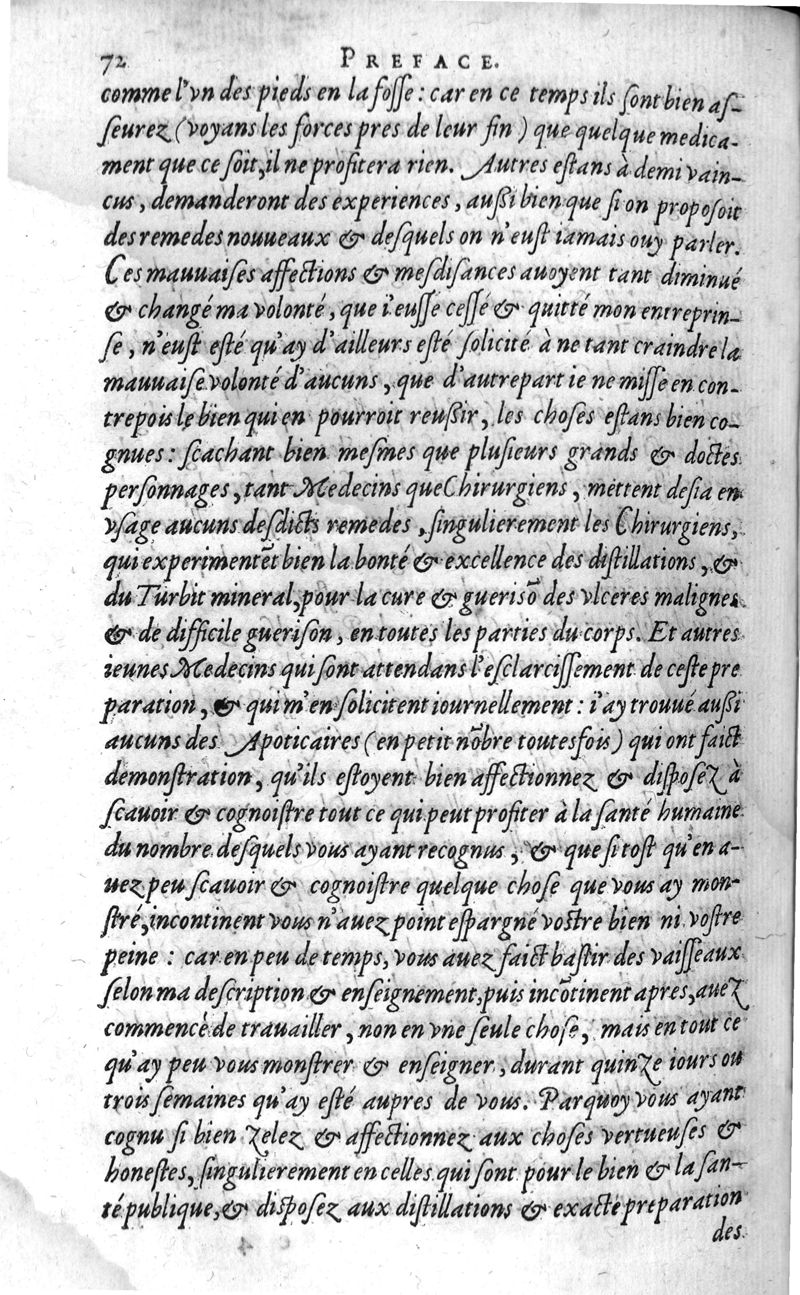 72 PREFACE.
comme l'vn des pieds en la fosse : car en ce temps ils sont bien as-
seurez (voyans les forces pres de leur fin) que quelque medica-
ment que ce soit, il ne profitera rien. Autres estans à demi vain-
cus, demanderont des experiences, aussi bien que si on proposoit
des remedes nouueaux & desquels on n'eust iamais ouy parler.
Ces mauuaises affections & mesdisances auoyent tant diminué
& changé ma volonté, que i'eusse cessé & quitté mon entreprin-
se, n'eust esté qu'ay d'ailleurs esté solicité à ne tant craindre la
mauuaise volonté d'aucuns, que d'autrepart ie ne misse en con-
trepois le bien qui en pourroit reussir, les choses estans bien co-
gnues : scachant bien mesmes que plusieurs grands & doctes
personnages, tant Medecins que Chirurgiens, mettent desia en
vsage aucuns desdicts remedes, singulierement les Chirurgiens,
qui experimentẽt bien la bonté & excellence des distillations, &
du Turbit mineral, pour la cure & guerisõ des vlceres malignes
& de difficile guerison, en toutes les parties du corps. Et autres
ieunes Medecins qui sont attendans l'esclarcissement de ceste pre
paration, & qui m'en solicitent iournellement : i'ay trouué aussi
aucuns des Apoticaires (en petit nõbre toutesfois) qui ont faict
demonstration, qu'ils estoyent bien affectionnez & disposez à
scauoir & cognoistre tout ce qui peut profiter à la santé humaine
du nombre desquels vous ayant recognus, & que si tost qu'en a-
uez peu scauoir & cognoistre quelque chose que vous ay mon-
stré, incontinent vous n'auez point espargné vostre bien ni vostre
peine : car en peu de temps, vous auez faict bastir des vaisseaux
selon ma description & enseignement, puis incõtinent apres, auez
commencé de trauailler, non en vne seule chose, mais en tout ce
qu'ay peu vous monstrer & enseigner, durant quinze iours ou
trois semaines qu'ay esté aupres de vous. Parquoy vous ayant
cognu si bien zelez & affectionnez aux choses vertueuses &
honestes, singulierement en celles qui sont pour le bien & la san-
té publique, & disposez aux distillations & exacte preparation
des